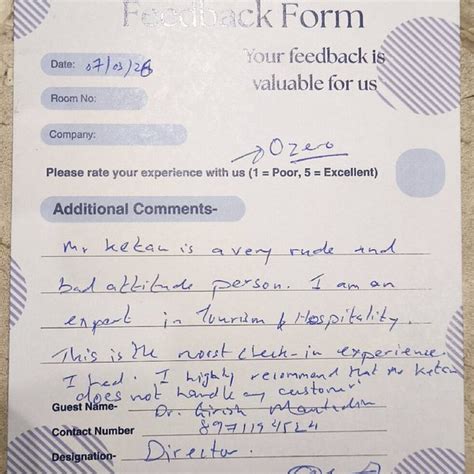 Feedback Form
Date: 07/03/26
Your feedback is
valuable for us
Room No:
Company:
→ 0 zero
Please rate your experience with us (1 = Poor, 5 = Excellent)
Additional Comments-
Mr Ketan is a very rude and
bad attitude person. I am an
expert in Tourism & Hospitality.
This is the worst check-in experience.
I had. I highly recommend that Mr Ketan
does not handle any customer
Guest Name- Dr. Girish
Contact Number 8971194524
Designation- Director